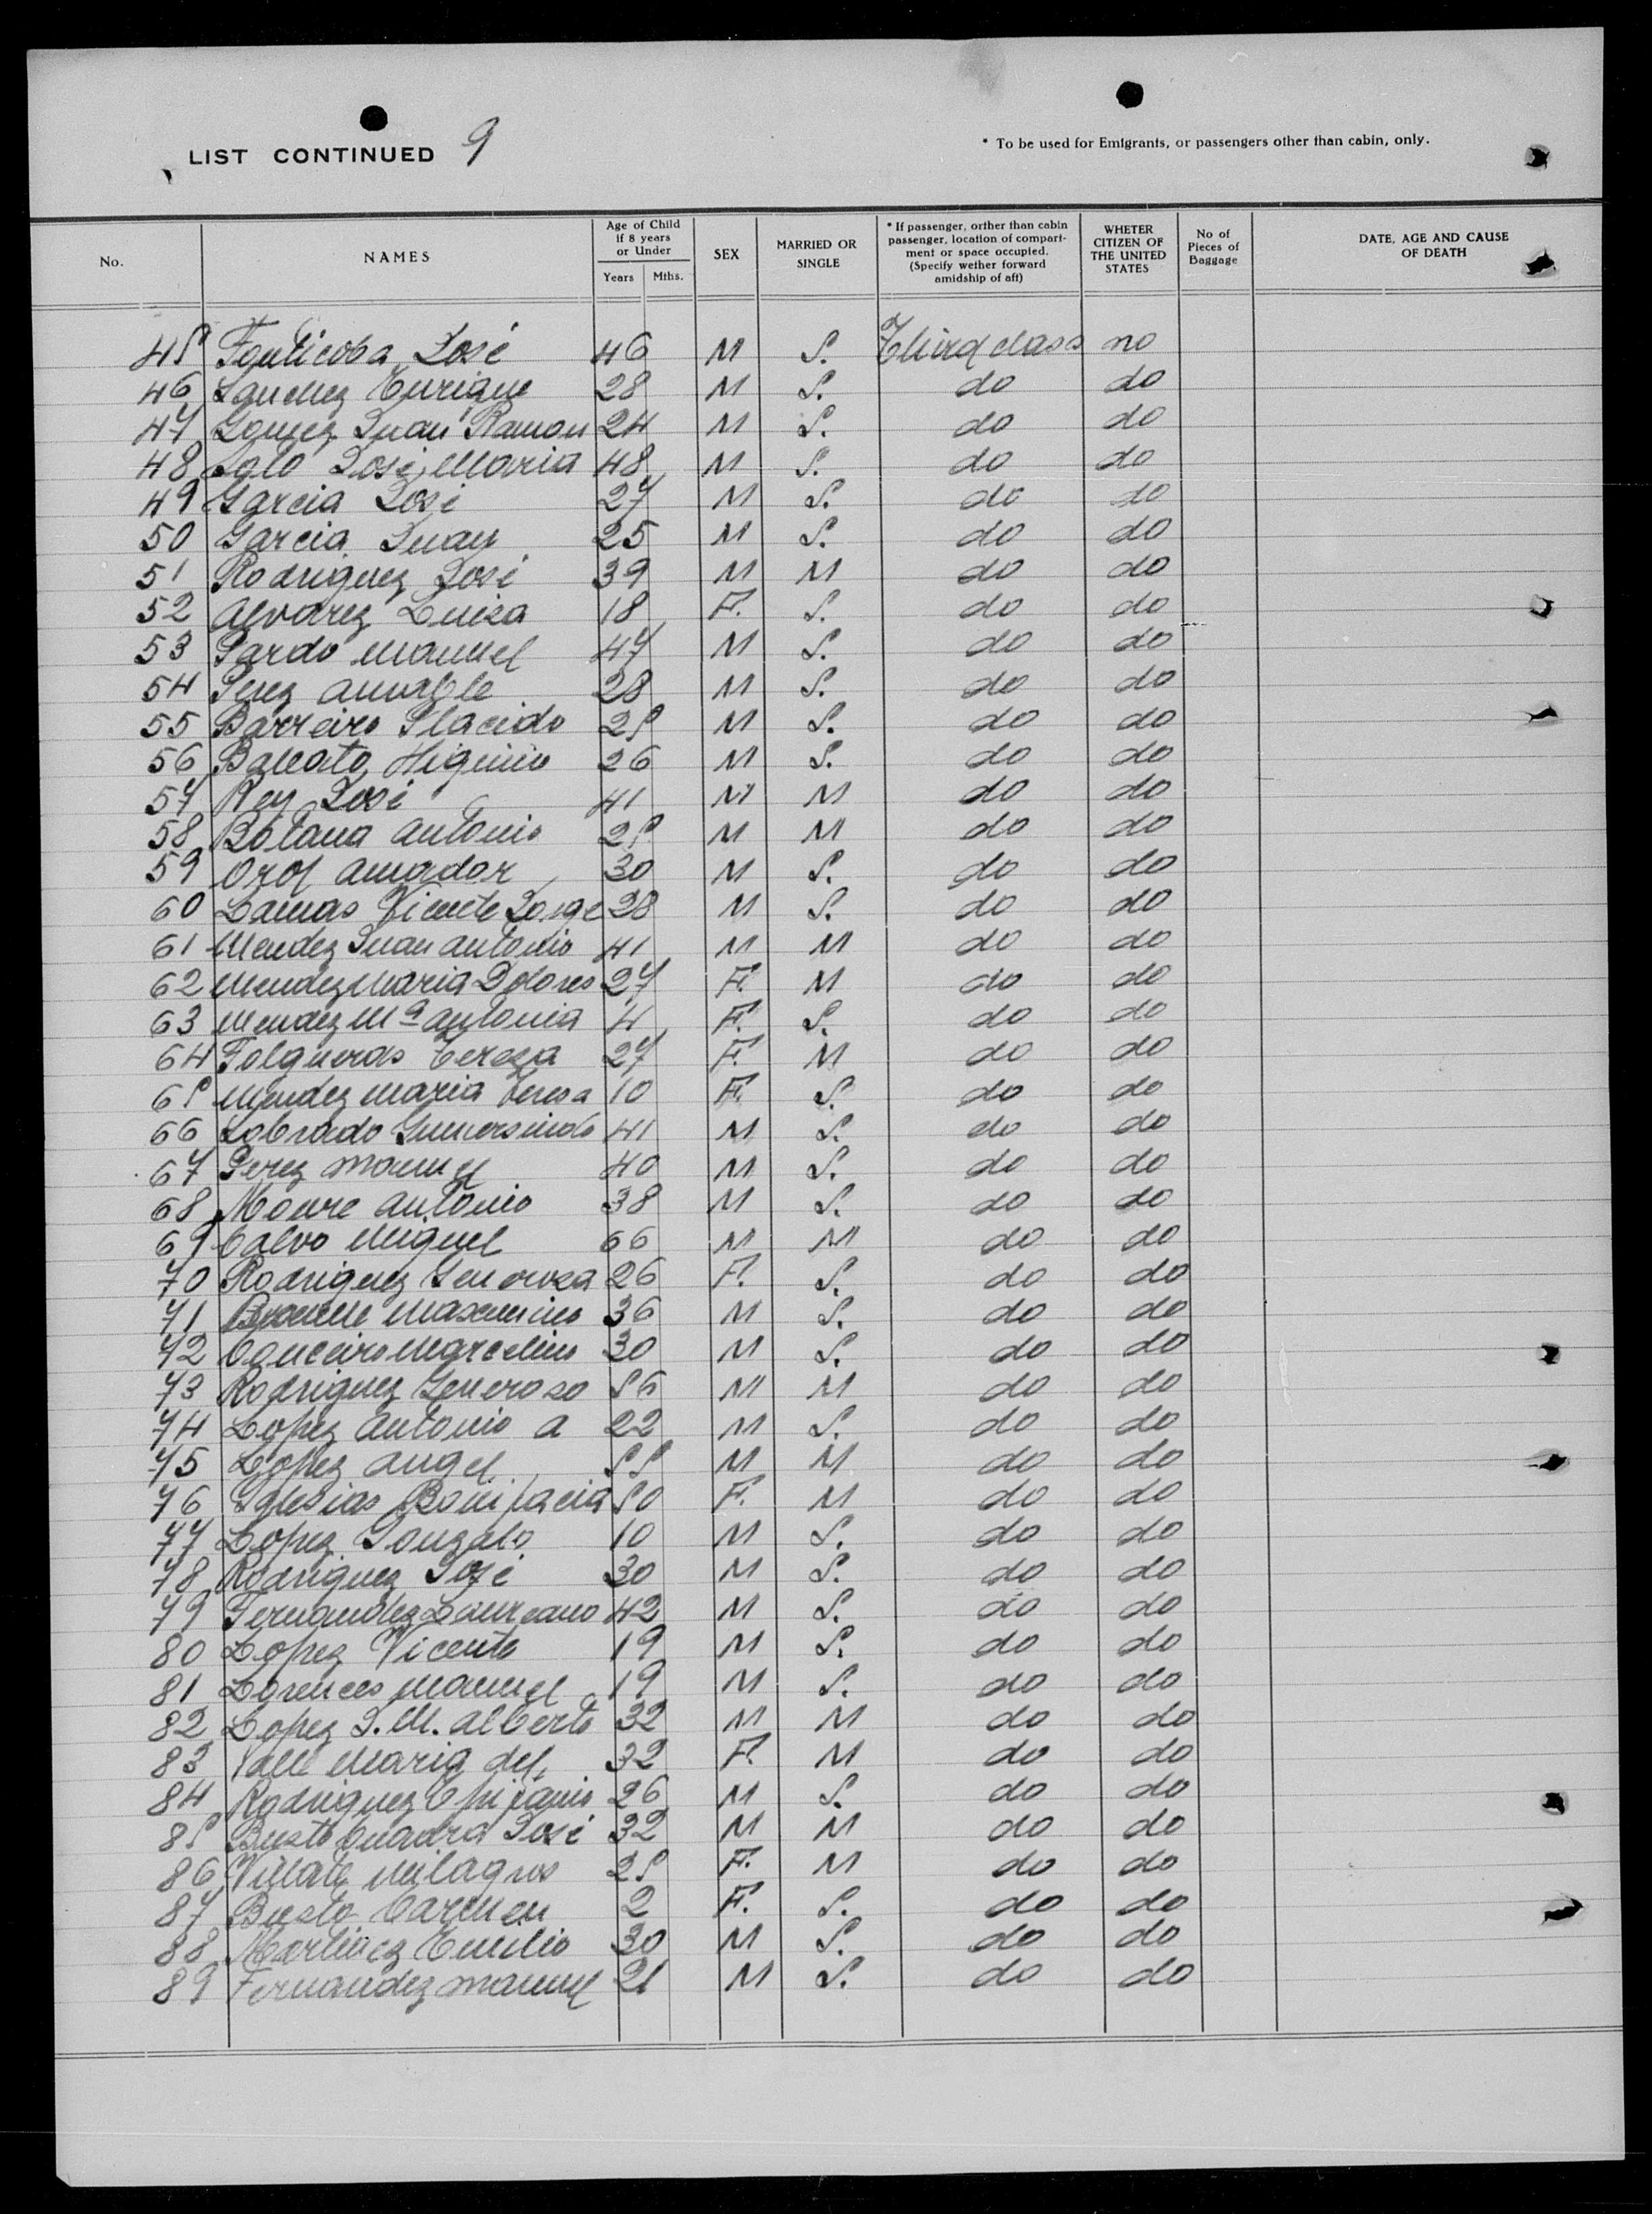 LIST CONTINUED 9
* To be used for Emigrants, or passengers other than cabin, only.
No. NAMES Age of Child if 8 years or Under Years Mths. SEX MARRIED OR SINGLE * If passenger, orther than cabin passenger, location of compartment or space occupied. (Specify wether forward amidship of aft) WHETER CITIZEN OF THE UNITED STATES No of Pieces of Baggage DATE, AGE AND CAUSE OF DEATH
45 José 46 M S. Third class no
46 Sanchez Enrique 28 M S. do do
47 Gomez Juan Ramon 24 M S. do do
48 José Maria 48 M S. do do
49 Garcia José 27 M S. do do
50 Garcia Juan 25 M S. do do
51 Rodriguez José 39 M M do do
52 Alvarez Luisa 18 F. S. do do
53 Pardo Manuel 47 M S. do do
54 Perez Amable 28 M S. do do
55 Barreiro Placido 25 M S. do do
56 Balcato Higinio 26 M S. do do
57 Rey José 41 M M do do
58 Botana Antonio 25 M M do do
59 Orol Amador 30 M S. do do
60 Lamas Vicente Jorge 28 M S. do do
61 Mendez Juan Antonio 41 M M do do
62 Mendez Maria Dolores 27 F. M do do
63 Mendez Mª Antonia 4 F. S. do do
64 Folgueras Teresa 27 F. M do do
65 Mendez Maria Teresa 10 F. S. do do
66 Sobrado Gumersindo 41 M S. do do
67 Perez Manuel 40 M S. do do
68 Moure Antonio 38 M S. do do
69 Calvo Miguel 66 M M do do
70 Rodriguez Generosa 26 F. S. do do
71 Maximino 36 M S. do do
72 Conceiro Marcelino 30 M S. do do
73 Rodriguez Generoso 56 M M do do
74 Lopez Antonio A 22 M S. do do
75 Lopez Angel 55 M M do do
76 Iglesias Bonifacia 50 F. M do do
77 Lopez Gonzalo 10 M S. do do
78 Rodriguez José 30 M S. do do
79 Fernandez Laureano 42 M S. do do
80 Lopez Vicente 19 M S. do do
81 Lorences Manuel 19 M S. do do
82 Lopez J. M. Alberto 32 M M do do
83 Valle Maria del 32 F. M do do
84 Rodriguez Epifanio 26 M S. do do
85 Busto Cuadra José 32 M M do do
86 Villate Milagros 25 F. M do do
87 Busto Carmen 2 F. S. do do
88 Martinez Emilio 30 M S. do do
89 Fernandez Manuel 21 M S. do do